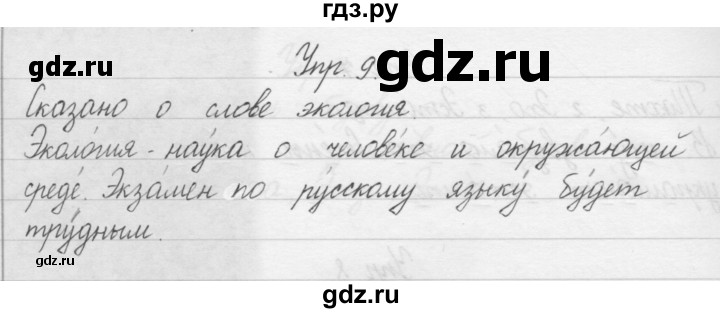 гдз.ру
gdz.ru
Упр. 9.
gdz.ru
Сказано о слове экология.
Эколо́гия - нау́ка о челове́ке и окружа́ющей
среде́. Экза́мен по ру́сскому языку́ бу́дет
тру́дным.
gdz.ru
gdz.ru
gdz.ru